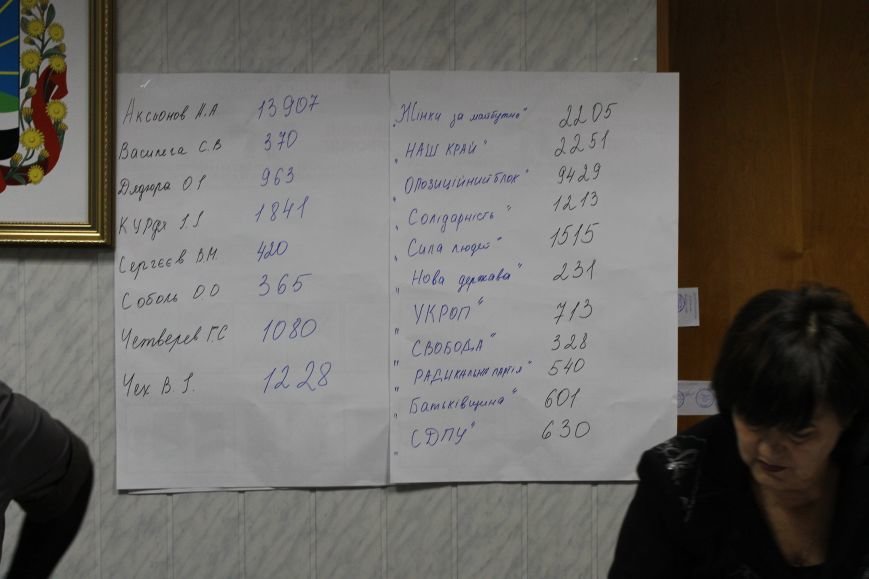 Аксьонов І.А 13907
Василега С.В 370
Дядюра О.І 963
КУРдя І.І 1841
Сергєєв В.М. 420
Соболь О.О 365
Четверев Г.С 1080
Чех В.І. 1228
„Жінки за майбутнє" 2205
„НАШ КРАЙ" 2251
„Опозиційний блок" 9429
„Солідарність" 1213
„Сила людей" 1515
„Нова держава" 231
„УКРОП" 713
„СВОБОДА" 328
„РАДИКАЛЬНА ПАРТІЯ" 540
„Батьківщина" 601
„СДПУ" 630